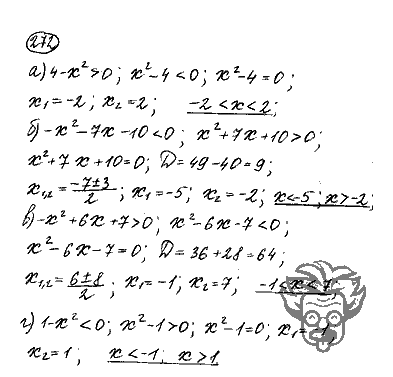 272
а) 4-x²>0; x²-4<0; x²-4=0;
x₁=-2; x₂=2; -2<x<2;
б) -x²-7x-10<0; x²+7x+10>0;
x²+7x+10=0; D=49-40=9;
x₁,₂=(-7±3)/2; x₁=-5; x₂=-2; x<-5; x>-2;
в) -x²+6x+7>0; x²-6x-7<0;
x²-6x-7=0; D=36+28=64;
x₁,₂=(6±8)/2; x₁=-1; x₂=7; -1<x<7;
г) 1-x²<0; x²-1>0; x²-1=0; x₁=-1,
x₂=1; x<-1; x>1